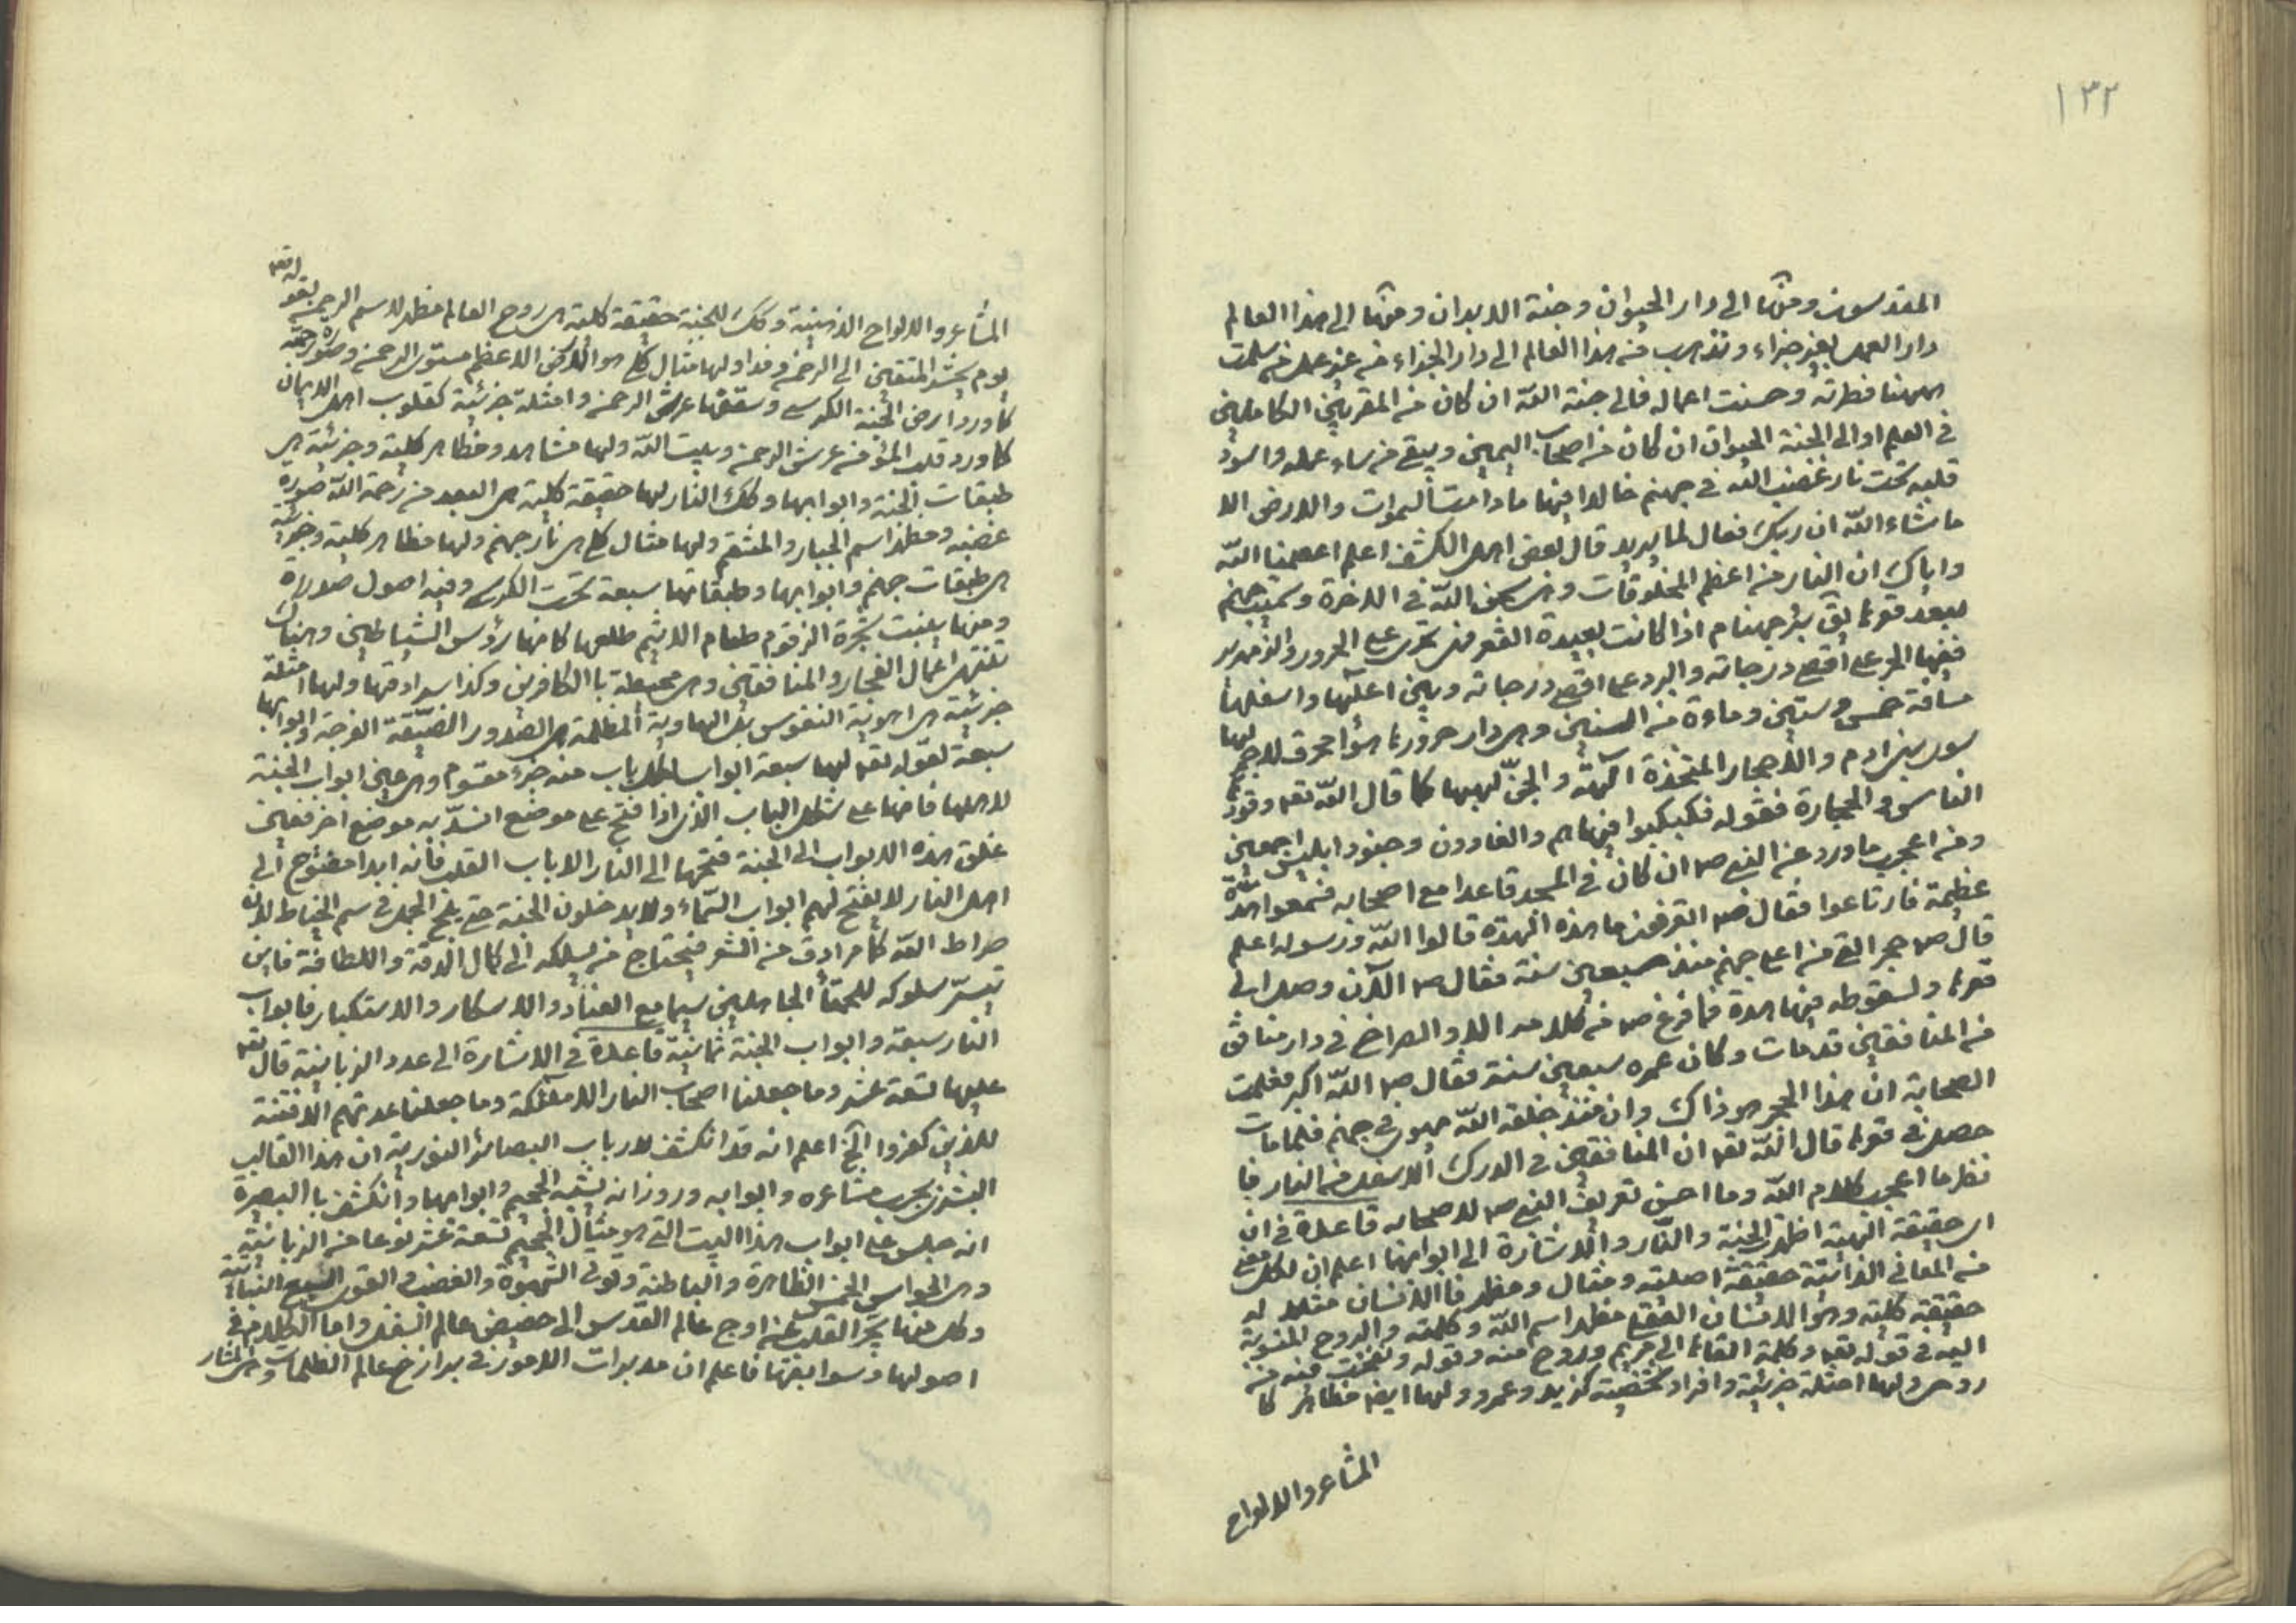 ١٣٢
المقدسون ومنها الى دار الحيوان وجنة الابدان ومنها الى هذا العالم
دار العمل بغير جزاء وتذهب من هذا العالم الى دار الجزاء من غير عمل فمن سلمت
ههنا فطرته وحسنت اعماله فالى جنة الله ان كان من المقربين الكاملين
في العلم او الى الجنة الحيوان ان كان من اصحاب اليمين ويبقى من ساء عمله واسود
قلبه تحت نار غضب الله في جهنم خالدا فيها ما دامت السموات والارض الا
ما شاء الله ان ربك فعال لما يريد قال بعض اهل الكشف اعلم اعصمنا الله
واياك ان النار من اعظم المخلوقات وهي سجن الله في الاخرة وسميت جهنم
لبعد قعرها يق بئر جهنام اذا كانت بعيدة القعر فهي تحوى على الحرور والزمهرير
ففيها الحر على اقصى درجاته والبرد على اقصى درجاته وبين اعلاها واسفلها
مسافة خمس وستين وماءة من السنين وهي دار حرورها هواء محرق لا جمر لها
سوى بنى ادم والاحجار المتخذة الهة والجن لهبها كما قال الله تعـ وقودها
الناس والحجارة فقوله فكبكبوا فيها هم والغاوون وجنود ابليس اجمعين
ومن اعجب ما ورد عن النبي صـ ان كان في المسجد قاعدا مع اصحابه فسمعوا هدة
عظيمة فارتاعوا فقال صـ اتعرفون ما هذه الهدة قالوا الله ورسوله اعلم
قال صـ حجر القي من اعلى جهنم منذ سبعين سنة فقال صـ الآن وصل الى
قعرها ولسقوطه فيها هدة فما فرغ صـ من كلامه الا والصراخ في دار منافق
من المنافقين قد مات وكان عمره سبعين سنة فقال صـ الله اكبر فعلمت
الصحابة ان هذا الحجر هو ذاك وان منذ خلقه الله يهوى في جهنم فلما مات
حصل في قعرها قال الله تعـ ان المنافقين في الدرك الاسفل من النار فا
نظر ما اعجب كلام الله وما احسن تعريف النبي صـ لاصحابه قاعدة في ان
اى حقيقة الهية اظهرت الجنة والنار والاشارة الى ابوابهما اعلم ان لكل معنى
من المعانى الذاتية حقيقة اصلية ومثال ومظهر فاالانسان مثلا له
حقيقة كلية وهو الانسان العقلي مظهر اسم الله وكلمته والروح المنسوبة
اليه في قوله تعـ وكلمة القاها الى مريم وروح منه وقوله ونفخت فيه من
روحى ولها امثلة جزئية وافراد شخصية كزيد وعمرو ولها ايضا مظاهر كا
المشاعر والالواح
المشاعر والالواح الذهنية وكك للجنة حقيقة كلية هي روح العالم مظهر لاسم الرحمن بقوله تعـ
يوم يحشر المتقين الى الرحمن وفدا ولها مثال كلي هو الركن الاعظم مستوى الرحمن وصورة رحمته
كما ورد ارض الجنة الكرسي وسقفها عرش الرحمن وامثلة جزئية كقلوب اهل الايمان
كما ورد قلب المؤمن عرش الرحمن وبيت الله ولها مشاهد ومظاهر كلية وجزئية هي
طبقات الجنة وابوابها وكك النار لها حقيقة كلية هي البعد من رحمة الله صورة
غضبه ومظهر اسم الجبار والمنتقم ولها مثال كلي هي نار جهنم ولها مظاهر كلية وجزئية
هي طبقات جهنم وابوابها وطبقاتها سبعة تحت الكرسي وفيه اصول
ومنها ينبت شجرة الزقوم طعام الاثيم طلعها كانها رؤس الشياطين وهناك
تنتهى اعمال الفجار والمنافقين وهي محيطة باالكافرين وكذا سرادقها ولها امثلة
جزئية هي اهوية النفوس بقر الهاوية المظلمة هي الصدور الضيقة الحرجة وابوابها
سبعة لقوله تعـ لها سبعة ابواب لكل باب منه جزء مقسوم وهي عين ابواب الجنة
لاهلها فانها على شكل الباب الذى اذا فتح على موضع انسد به موضع اخر فعين
غلق هذه الابواب الى الجنة فتحها الى النار الا باب القلب فانه ابدا مفتوح الى
اهل النار لا يفتح لهم ابواب السماء ولا يدخلون الجنة حتى يلج الجمل في سم الخياط لان
صراط الله كما مر ادق من الشعر فيحتاج من يسلكه الى كمال الدقة واللطافة فاين
تيسر سلوكه للحمقاء الجاهلين سيما مع العناد والاسكار والاستكبار فابواب
النار سبعة وابواب الجنة ثمانية قاعدة في الاشارة الى عدد الزبانية قال تعـ
عليها تسعة عشر وما جعلنا اصحاب النار الا ملائكة وما جعلنا عدتهم الا فتنة
للذين كفروا الخ اعلم انه قد انكشف لارباب البصائر النورية ان هذا القالب
البشرى بحسب مشاعره وابوابه وروزانه يشبه الجحيم وابوابها وانكشف باالبصيرة
انه جلس على ابواب هذا البيت التي هو مثال الجحيم تسعة عشر نوعا من الزبانية
وهي الحواس الخمس الظاهرة والباطنة وقوتى الشهوة والغضب والقوى السبع النباتية
وكل منها يجر القلب عن اوج عالم القدس الى حضيض عالم السفل واما الكلام في
اصولها وسوابقها فاعلم ان مدبرات الامور في برازخ عالم الظلمات وهي المشار